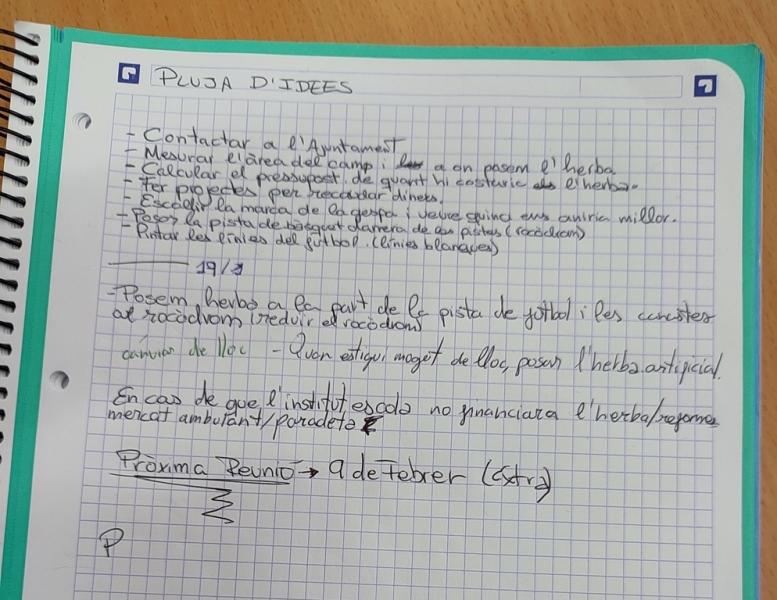 PLUJA D'IDEES
- Contactar a l'Ajuntament
- Mesurar l'àrea del camp i a on posem l'herba
- Calcular el pressupost de quant hi costaria l'herba.
- Fer projectes per recaudar diners.
- Escollir la marca de la gespa i veure quina ens aniria millor.
- Posar la pista de bàsquet darrera de les pistes (rocòdrom)
- Pintar les línies del futbol. (línies blanques)
19/1
- Posem herba a la part de la pista de futbol i les canastes
al rocòdrom (reduir el rocòdrom)
canviar de lloc - Quan estigui mogut de lloc, posar l'herba artificial.
En cas de que l'institut escola no financiara l'herba/reformes
mercat ambulant/paradeta
Pròxima Reunió → 9 de Febrer (Extra)
P